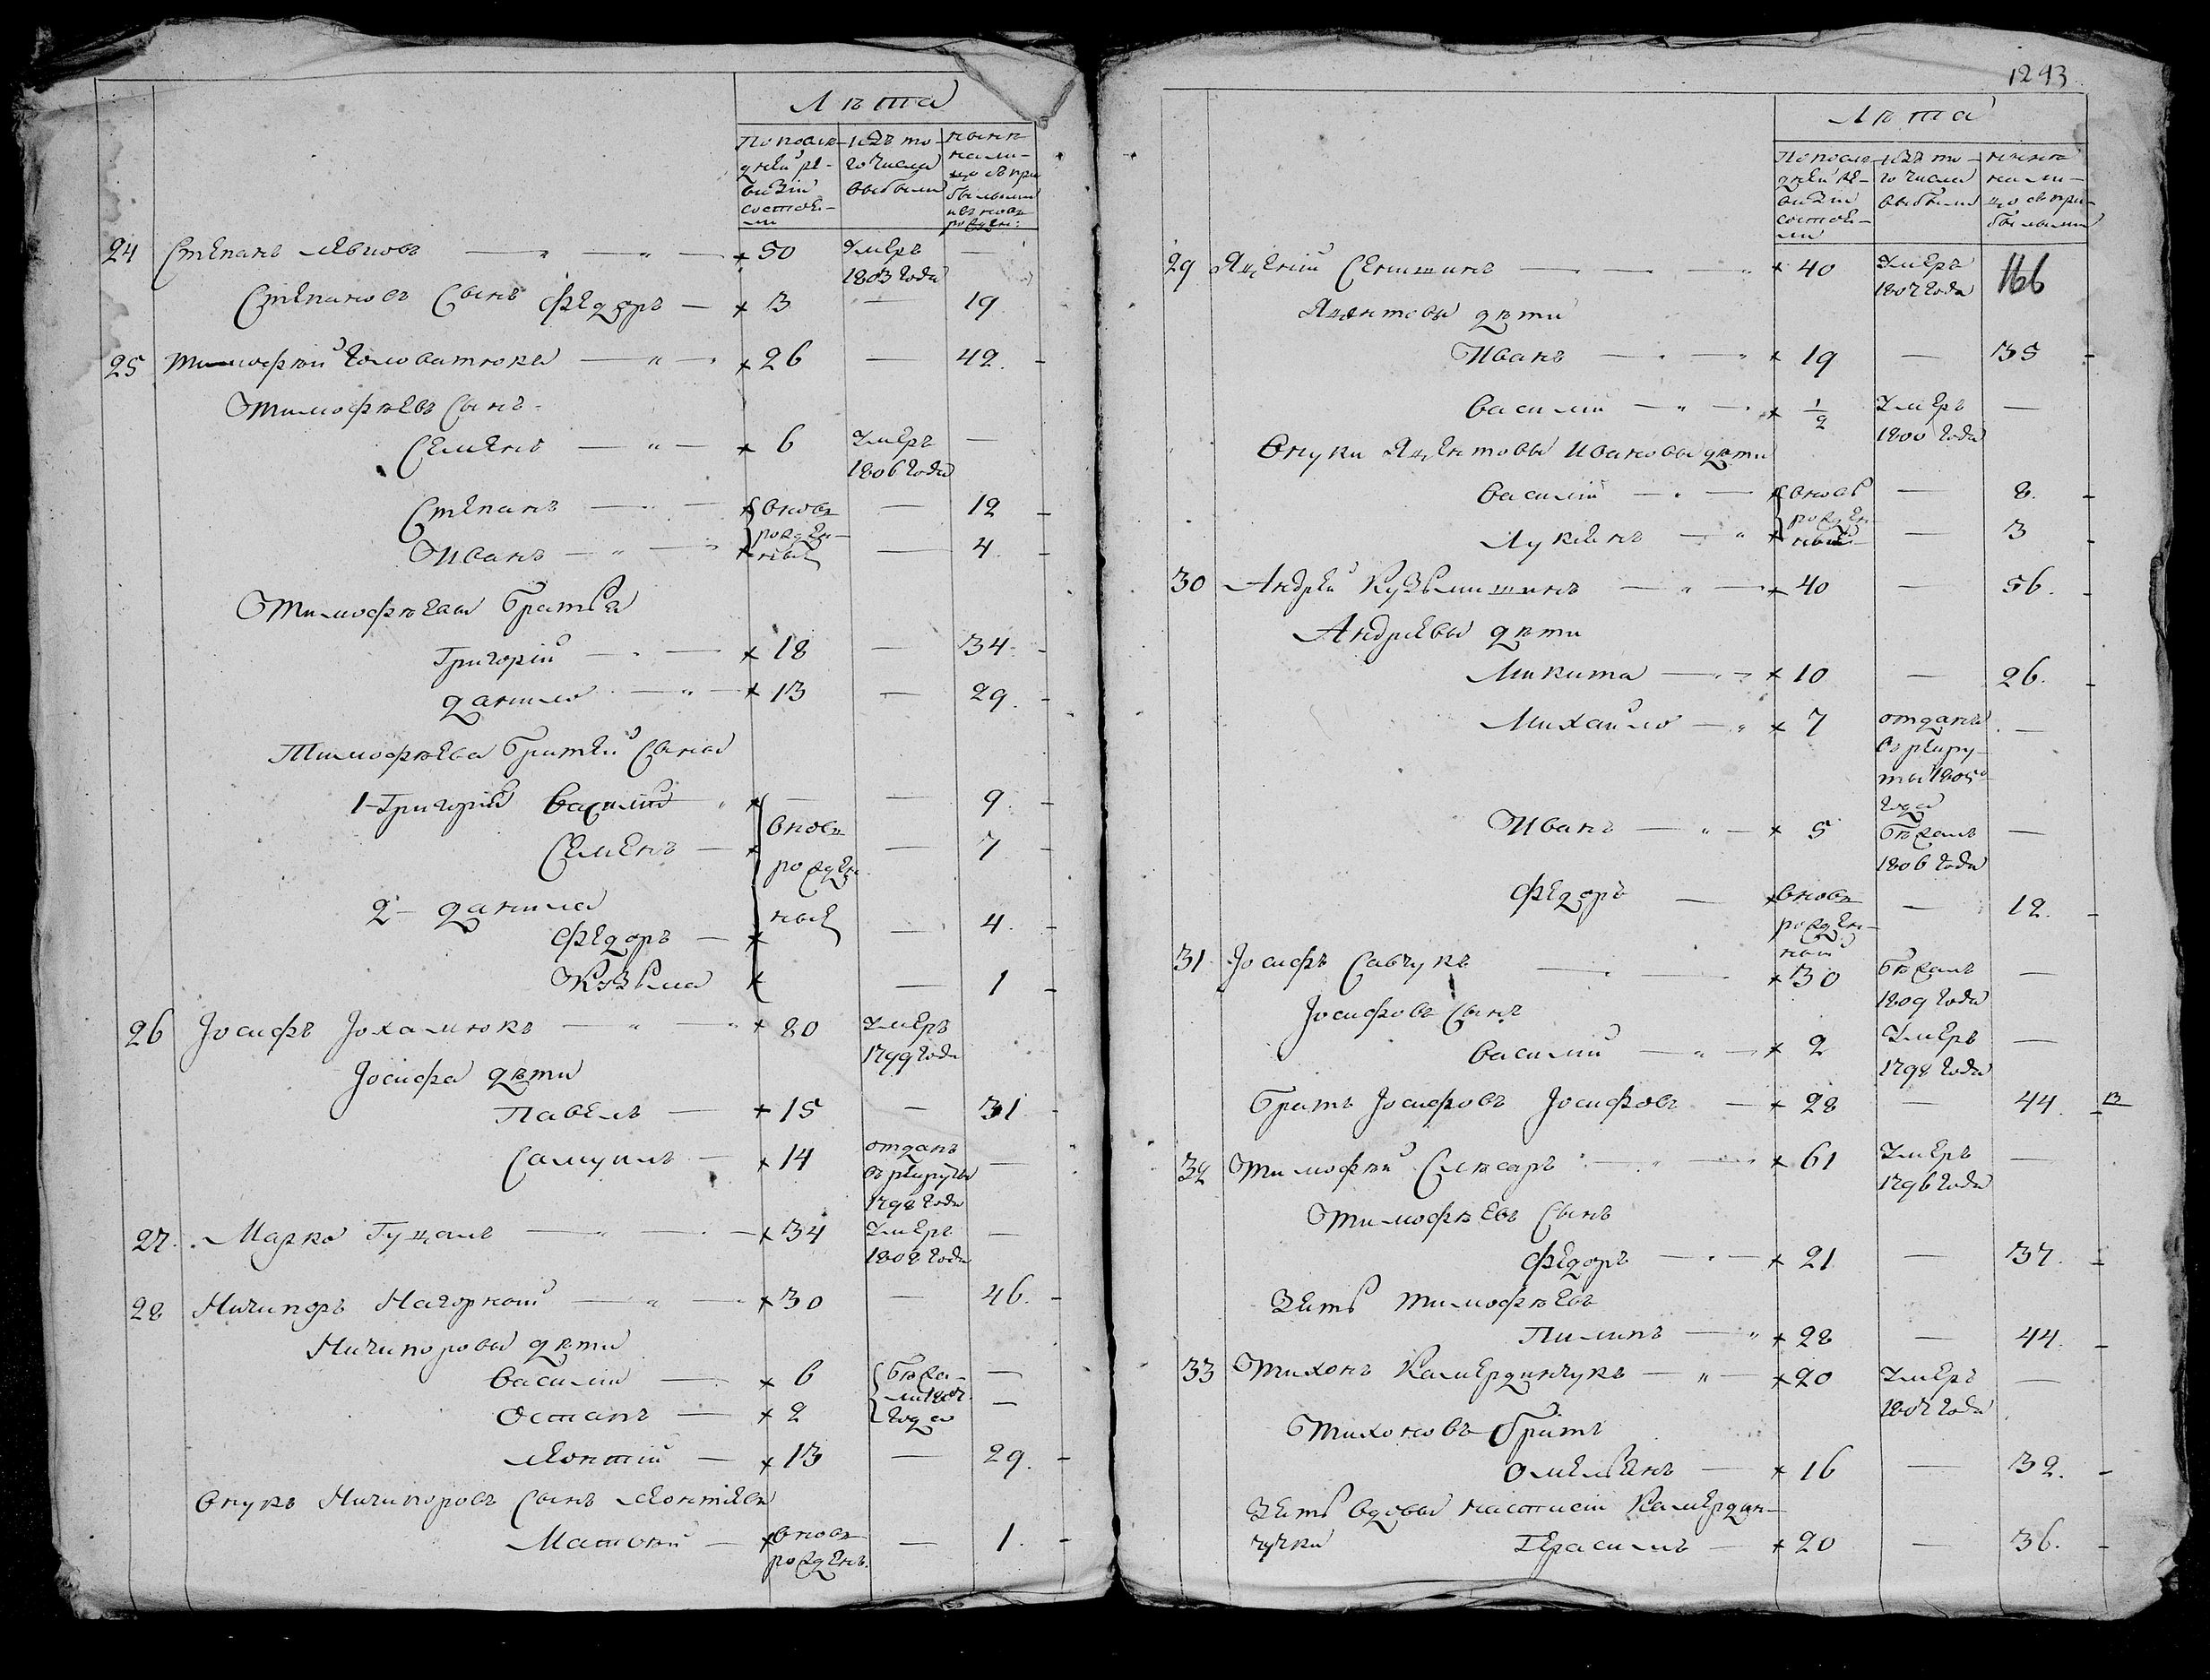 Лѣта
По послѣ-
дней ре-
визіи
состоя-
ли
изъ то-
го числа
выбыли
нынѣ
нали-
цо съ при
былыми
и вновь
рожден:
24 Степанъ 50 умеръ —
1803 года
Степановъ Сынъ Федоръ — 3 — 19
25 Тимофѣй Головатюкъ — 26 — 42.
Тимофѣевъ Сынъ
Семенъ — 6 умеръ —
1806 года
Степанъ — вновь — 12
рожден-
Иванъ — ные — 4.
Тимофѣевы братья
Григорій — 18 — 34.
Данило — 13 — 29.
Тимофѣева братей Сыны
1-Григорій Василій — — 9.
вновь
Семенъ — — 7
рожден
2- Данила
ные
Федоръ — — 4.
Козьма — 1
26 Іосифъ Іохимюкъ — 80 умеръ
1799 года
Іосифа дѣти
Павелъ — 15 — 31
Самуилъ — 14 отданъ —
въ рекруты
1798 года
27. Марко Гуцалъ — 34 умеръ —
1808 года
28 Ничипоръ Нагорный — 30 — 46.
Ничипоровы дѣти
Василій — 6 бѣжа- —
Остапъ — 2 ли 1807 —
года
Леонтій — 13 — 29.
Внукъ Ничипоровъ Сынъ Леонтіевъ
Матвѣй — вновь — 1.
рожденъ.
1293
Лѣта
По послѣ-
дней ре-
визіи
состоя-
ли
изъ то-
го числа
выбыли
нынѣ
нали-
цо съ при-
былыми
29 Яцентій Сенишинъ — 40 умеръ 166
1807 года
Яцентовы дѣти
Иванъ — 19 — 35
Василій — 1/2 умеръ —
1800 года
Внуки Яцентовы Ивановы дѣти
Василій — вновь — 8.
рожден-
Лукьянъ — ные — 3
30 Андрей Кузьмишинъ — 40 — 56.
Андреевы дѣти
Микита — 10 — 26.
Михайло — 7 отданъ —
въ рекру-
ты 1805го
года
Иванъ — 5 бѣжалъ —
1806 года
Федоръ — вновь — 12.
рожден-
ный
31 Іосифъ Савчукъ — 30 бѣжалъ —
1809 года
Іосифовъ Сынъ
Василій — 2 умеръ —
1798 года
Братъ Іосифовъ Іосифъ — 28 — 44. 13
32 Тимофѣй Слюсаръ — 61 умеръ —
1796 года
Тимофѣевъ Сынъ
Федоръ — 21 — 37.
Зять Тимофѣевъ
Пилипъ — 28 — 44.
33 Тихонъ Камердинчукъ — 20 умеръ —
1807 года
Тихоновъ братъ
Омельянъ — 16 — 32.
Зять вдовы Настасіи Камердин-
чучки Герасимъ — 20 — 36.